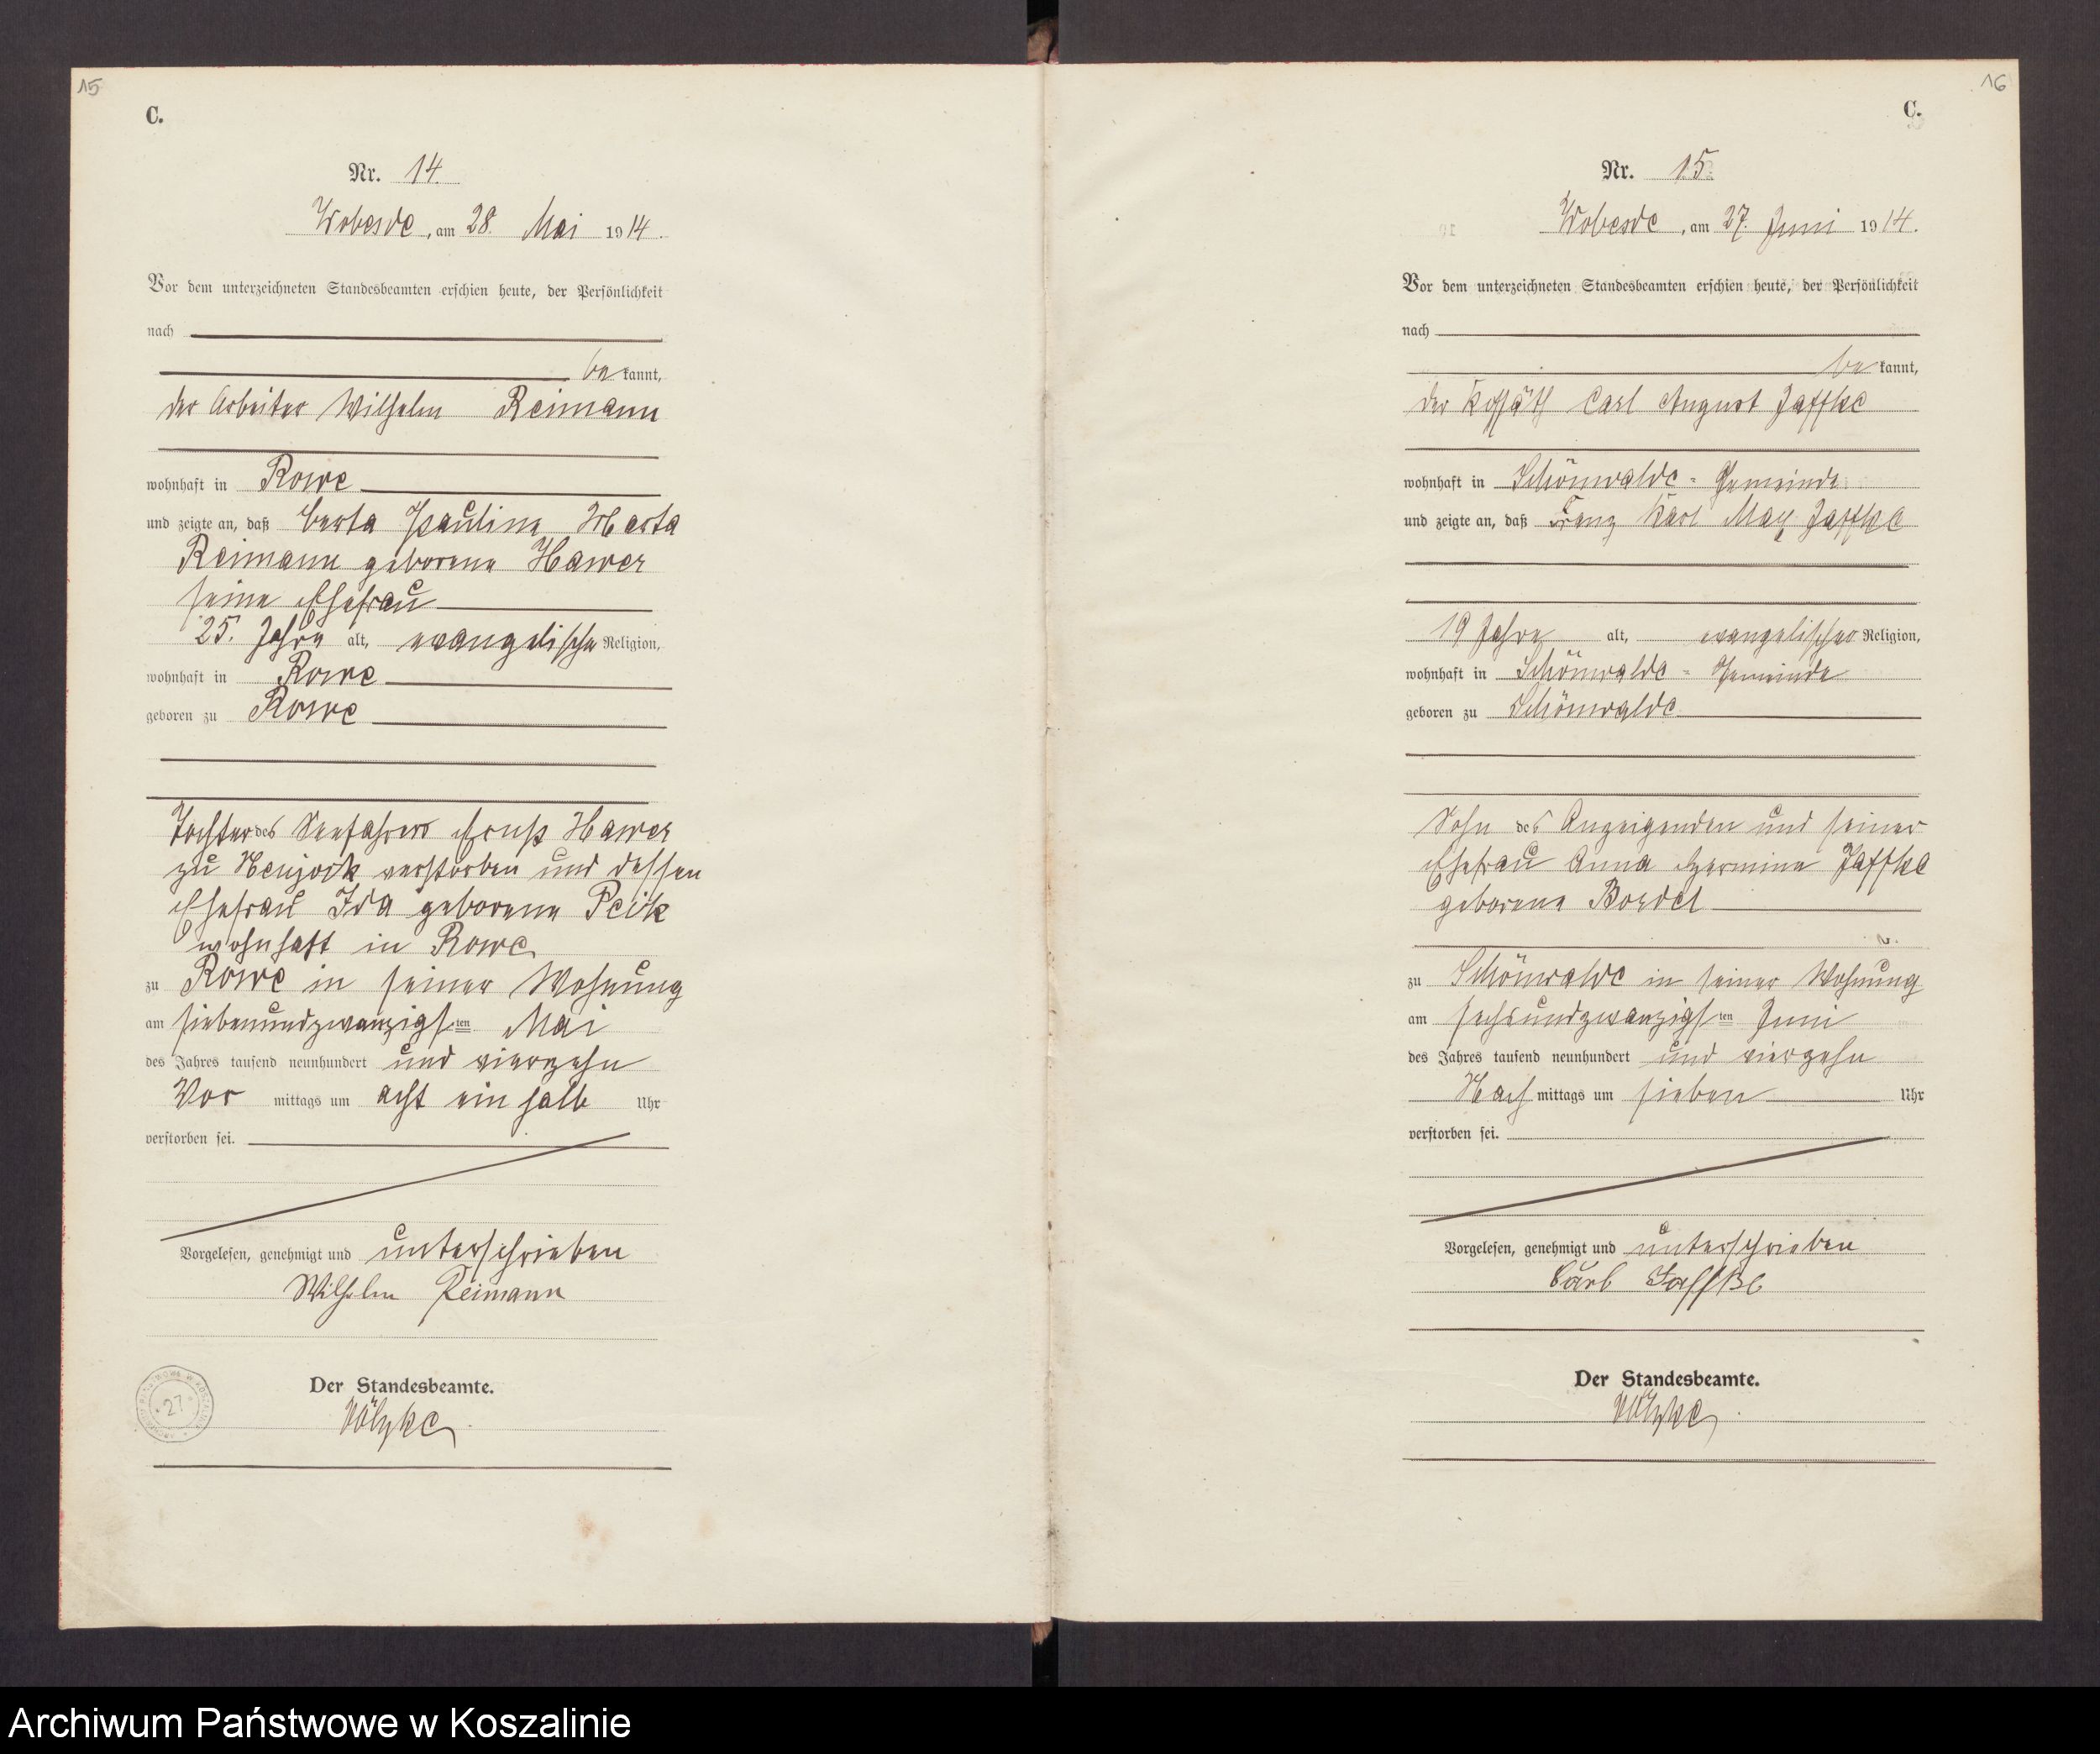 15
C.
Nr. 14.
Wobesde, am 28. Mai 1914.
Vor dem unterzeichneten Standesbeamten erschien heute, der Persönlichkeit
nach
be kannt,
der Arbeiter Wilhelm Reimann
wohnhaft in Rowe
und zeigte an, daß Berta Pauline Marta
Reimann geborene Hawer
seine Ehefrau
25. Jahre alt, evangelischer Religion,
wohnhaft in Rowe
geboren zu Rowe
Tochter des Seefahrers Ernst Hawer
zu Neujork verstorben und dessen
Ehefrau Ida geborene Peik
wohnhaft in Rowe
zu Rowe in seiner Wohnung
am siebenundzwanzigsten Mai
des Jahres tausend neunhundert und vierzehn
Vor mittags um acht ein halb Uhr
verstorben sei.
Vorgelesen, genehmigt und unterschrieben
Wilhelm Reimann
Der Standesbeamte.
27
16
C.
Nr. 15.
Wobesde, am 27. Juni 1914.
Vor dem unterzeichneten Standesbeamten erschien heute, der Persönlichkeit
nach
be kannt,
der Kossäth Carl August Jaffke
wohnhaft in Schönwalde - Gemeinde
und zeigte an, daß Franz Karl Max Jaffke
19 Jahre alt, evangelischer Religion,
wohnhaft in Schönwalde - Gemeinde
geboren zu Schönwalde
Sohn des Anzeigenden und seiner
Ehefrau Anna Hermine Jaffke
geborene Bordel
zu Schönwalde in seiner Wohnung
am sechsundzwanzigsten Juni
des Jahres tausend neunhundert und vierzehn
Nach mittags um sieben Uhr
verstorben sei.
Vorgelesen, genehmigt und unterschrieben
Carl Jaffke
Der Standesbeamte.
Archiwum Państwowe w Koszalinie